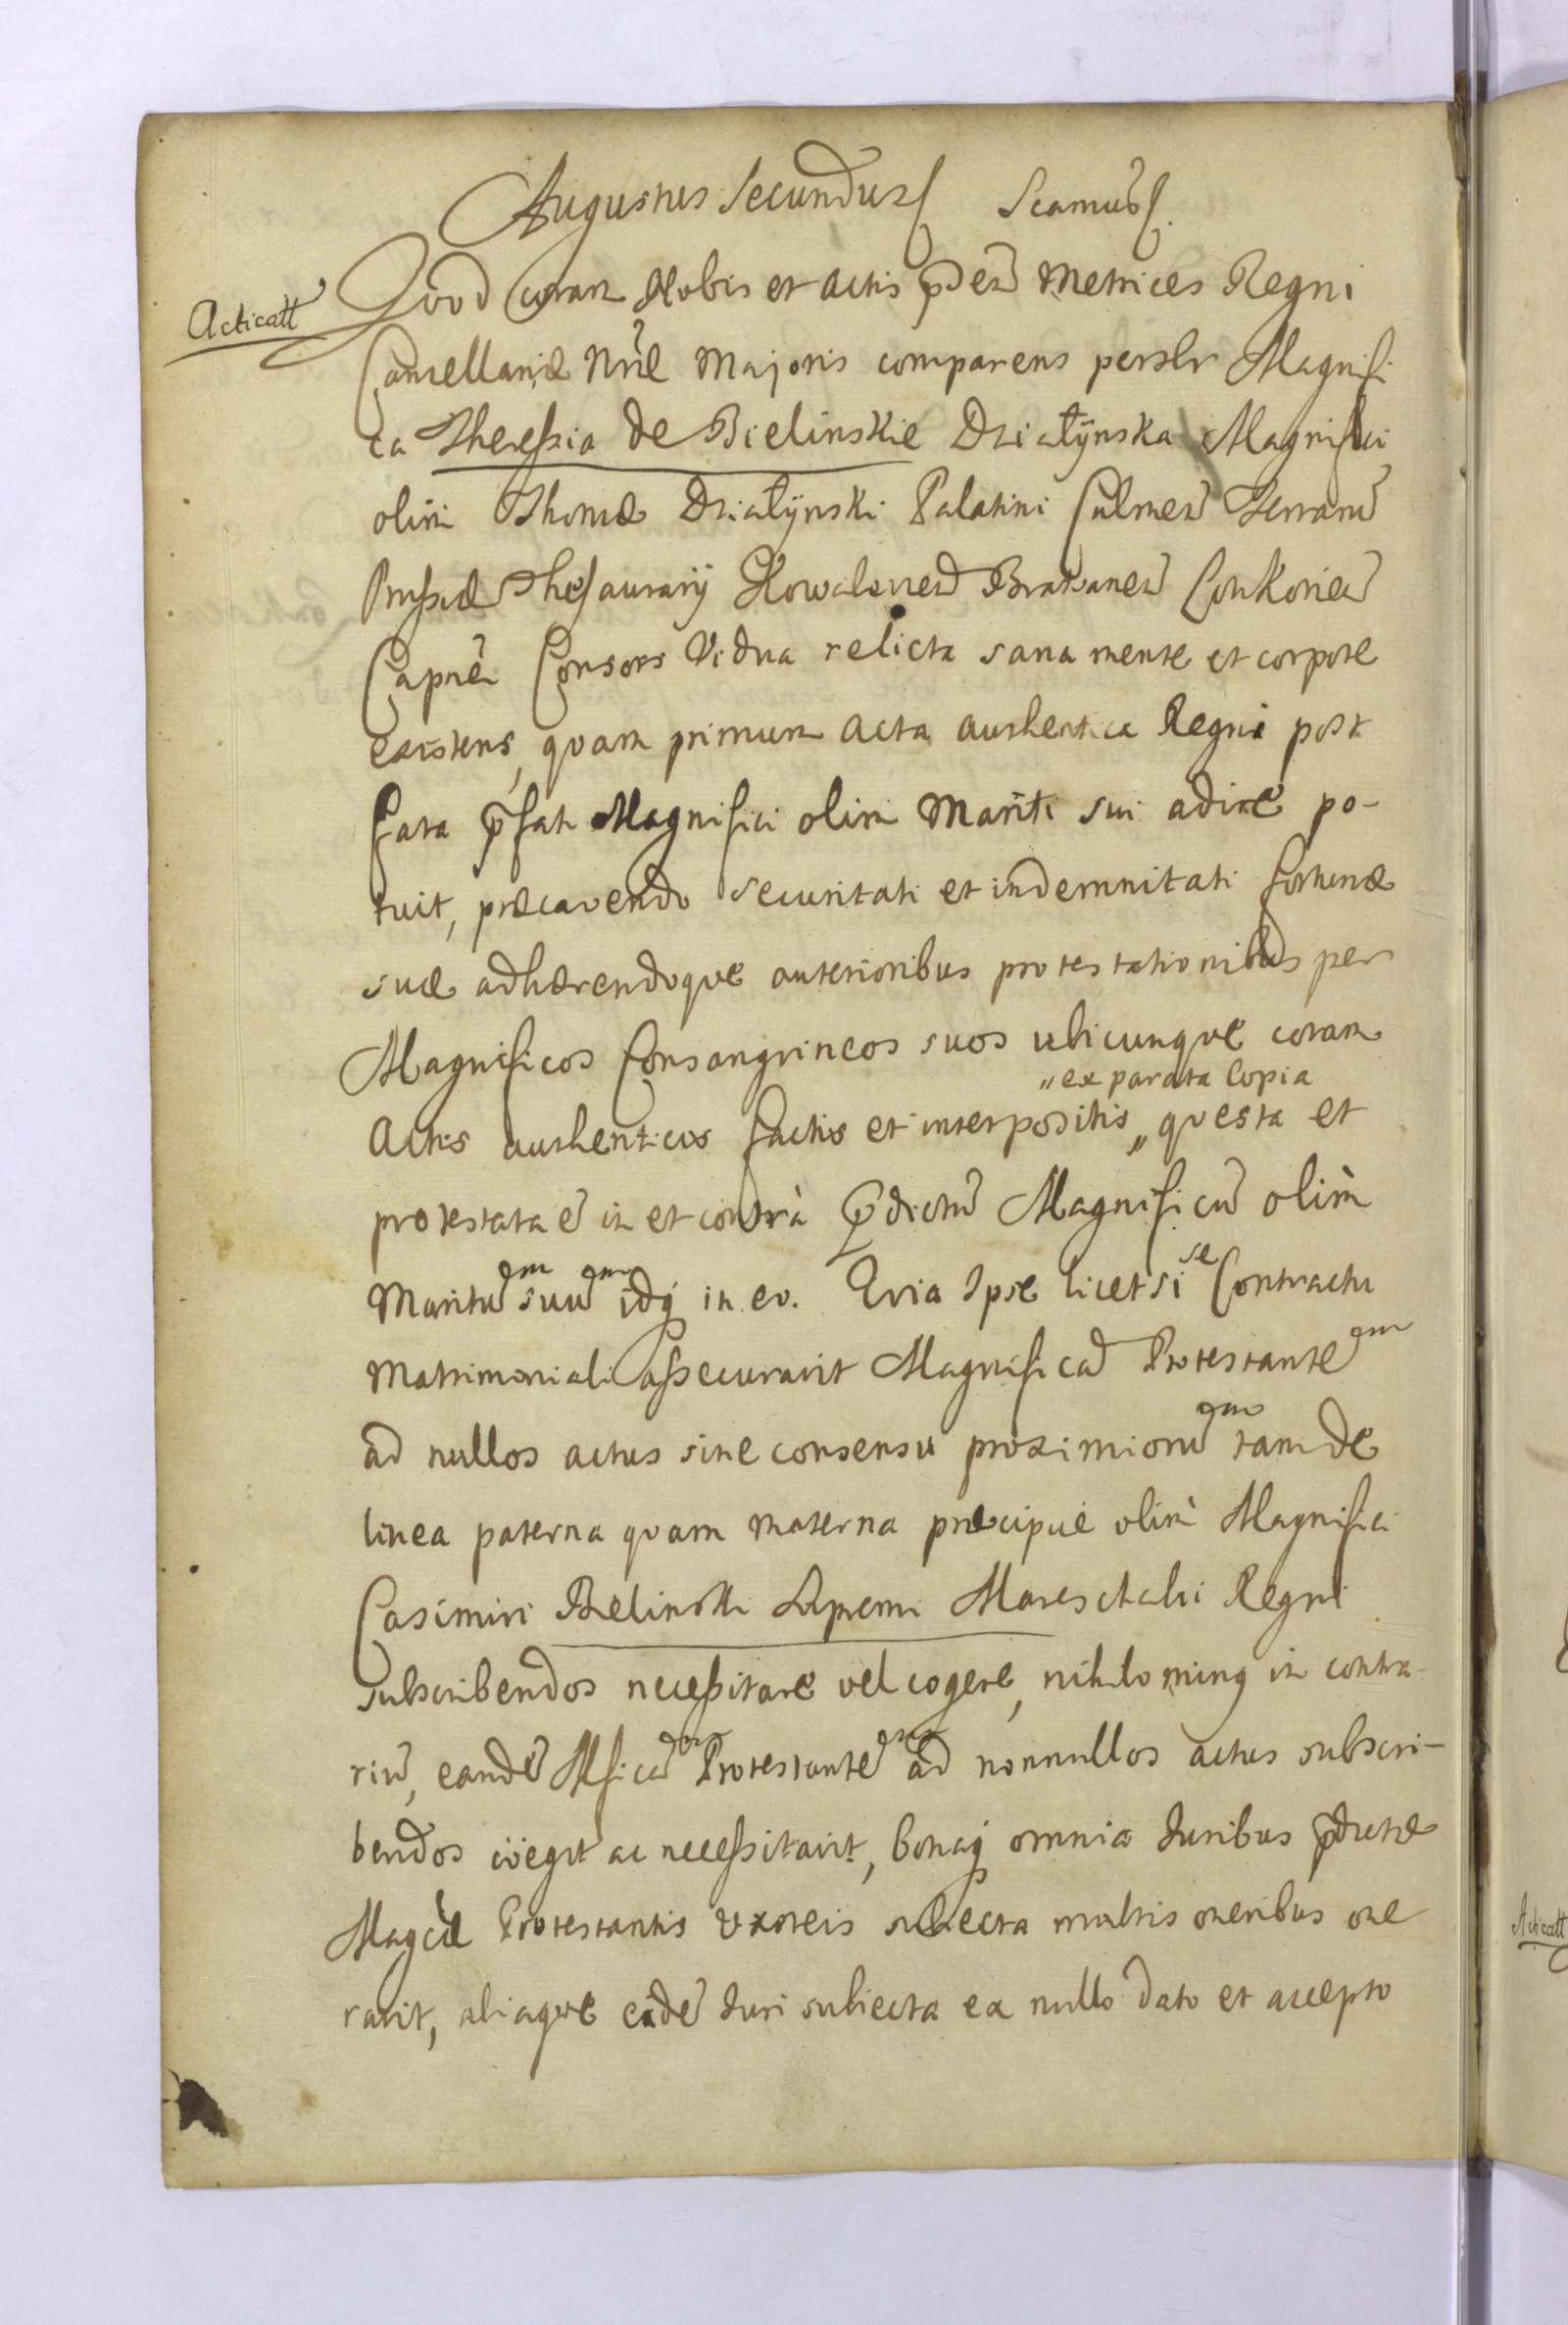 Augustus Secundus Scamus
Acticatt
Quod Coram Nobis et Actis p̄dēs Metrices Regni
Cancellariæ Nræ Majoris comparens persolr Magnifi
ca Theressia de Bielinskie Działÿnska Magnifici
olim Thomæ Działÿnski Palatini Culmeñ Terrarū
Prussiæ Thesaurarÿ Kowaloneñ Bratianeñ
Capneñ Consors Vidua relicta sana mente et corpore
existens, quam primum acta authentica Regni post
fata p̄fati Magnifici olim Mariti sui adire po-
tuit, præcavendo securitati et indemnitati fortunæ
suæ adhærendoque anterioribus protestationibus per
Magnificos Consanguineos suos ubicunque coram
„ex parata Copia
Actis authenticis factis et interpositis „ questa et
protestata ē in et contrà p̄dictū Magnificū olim
Maritū suū idq in eo. Quia Ipse licet si se Contractu
Matrimoniali assecuravit Magnificā Protestantē
ad nullos actus sine consensu proximiorū tam de
linea paterna quam materna præcipuè olim Magnifici
Casimiri Bielinski Supremi Mareschalci Regni
subscribendos necessitare vel cogere, nihilominq in contra-
riū, eandē Mficā Protestantē ad nonnullos actus subscri-
bendos coegit ac necessitavit, bonaq omnia Juribus p̄dictæ
Magcæ Protestantis uxoreis subiecta multis oneribus one
ravit, aliaque eidē Juri subiecta ex nullo dato et accepto
Acticatt